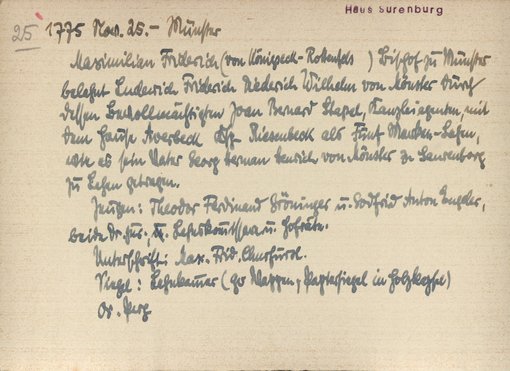 Haus Surenburg
25 1775 Nov. 25.- Münster
Maximilian Friderich (von Königseck-Rotenfels ) Bischof zu Münster
belehnt Luderich Friderich Diderich Wilhelm von Mönster durch
dessen Bevollmächtigten Joan Bernard Stapel, Kanzleiagenten, mit
dem Hause Averbeck Ksp. Riesenbeck als Fünf Marken-Lehen,
wie es sein Vater Georg Herman Henrich von Mönster zu Surenborg
zu Lehen getragen.
Zeugen: Theodor Ferdinand Gröninger u. Godfrid Anton
beide Dr. jur., Lehnskommissare u. Hofräte.
Unterschrift: Max. Frid. Churfürst.
Siegel: Lehnkammer (gr. Wappen, Papiersiegel in Holzkapsel)
Or. Perg